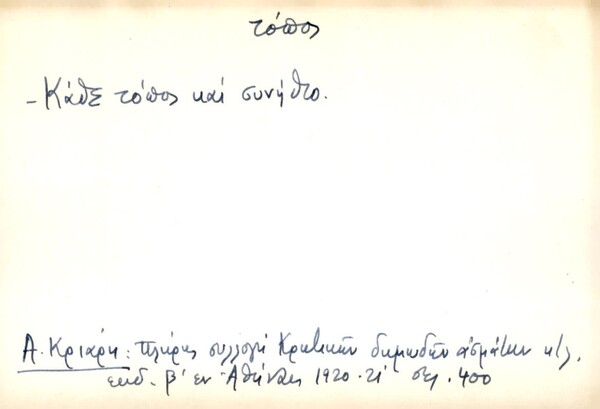 τόπος
- Κάθε τόπος καί συνήθιο.
Α. Κριάρη: Πλήρης συλλογή Κρητικών δημωδών ασμάτων κ'λ.
εκδ. β' εν Αθήναις 1920-21 σελ. 400